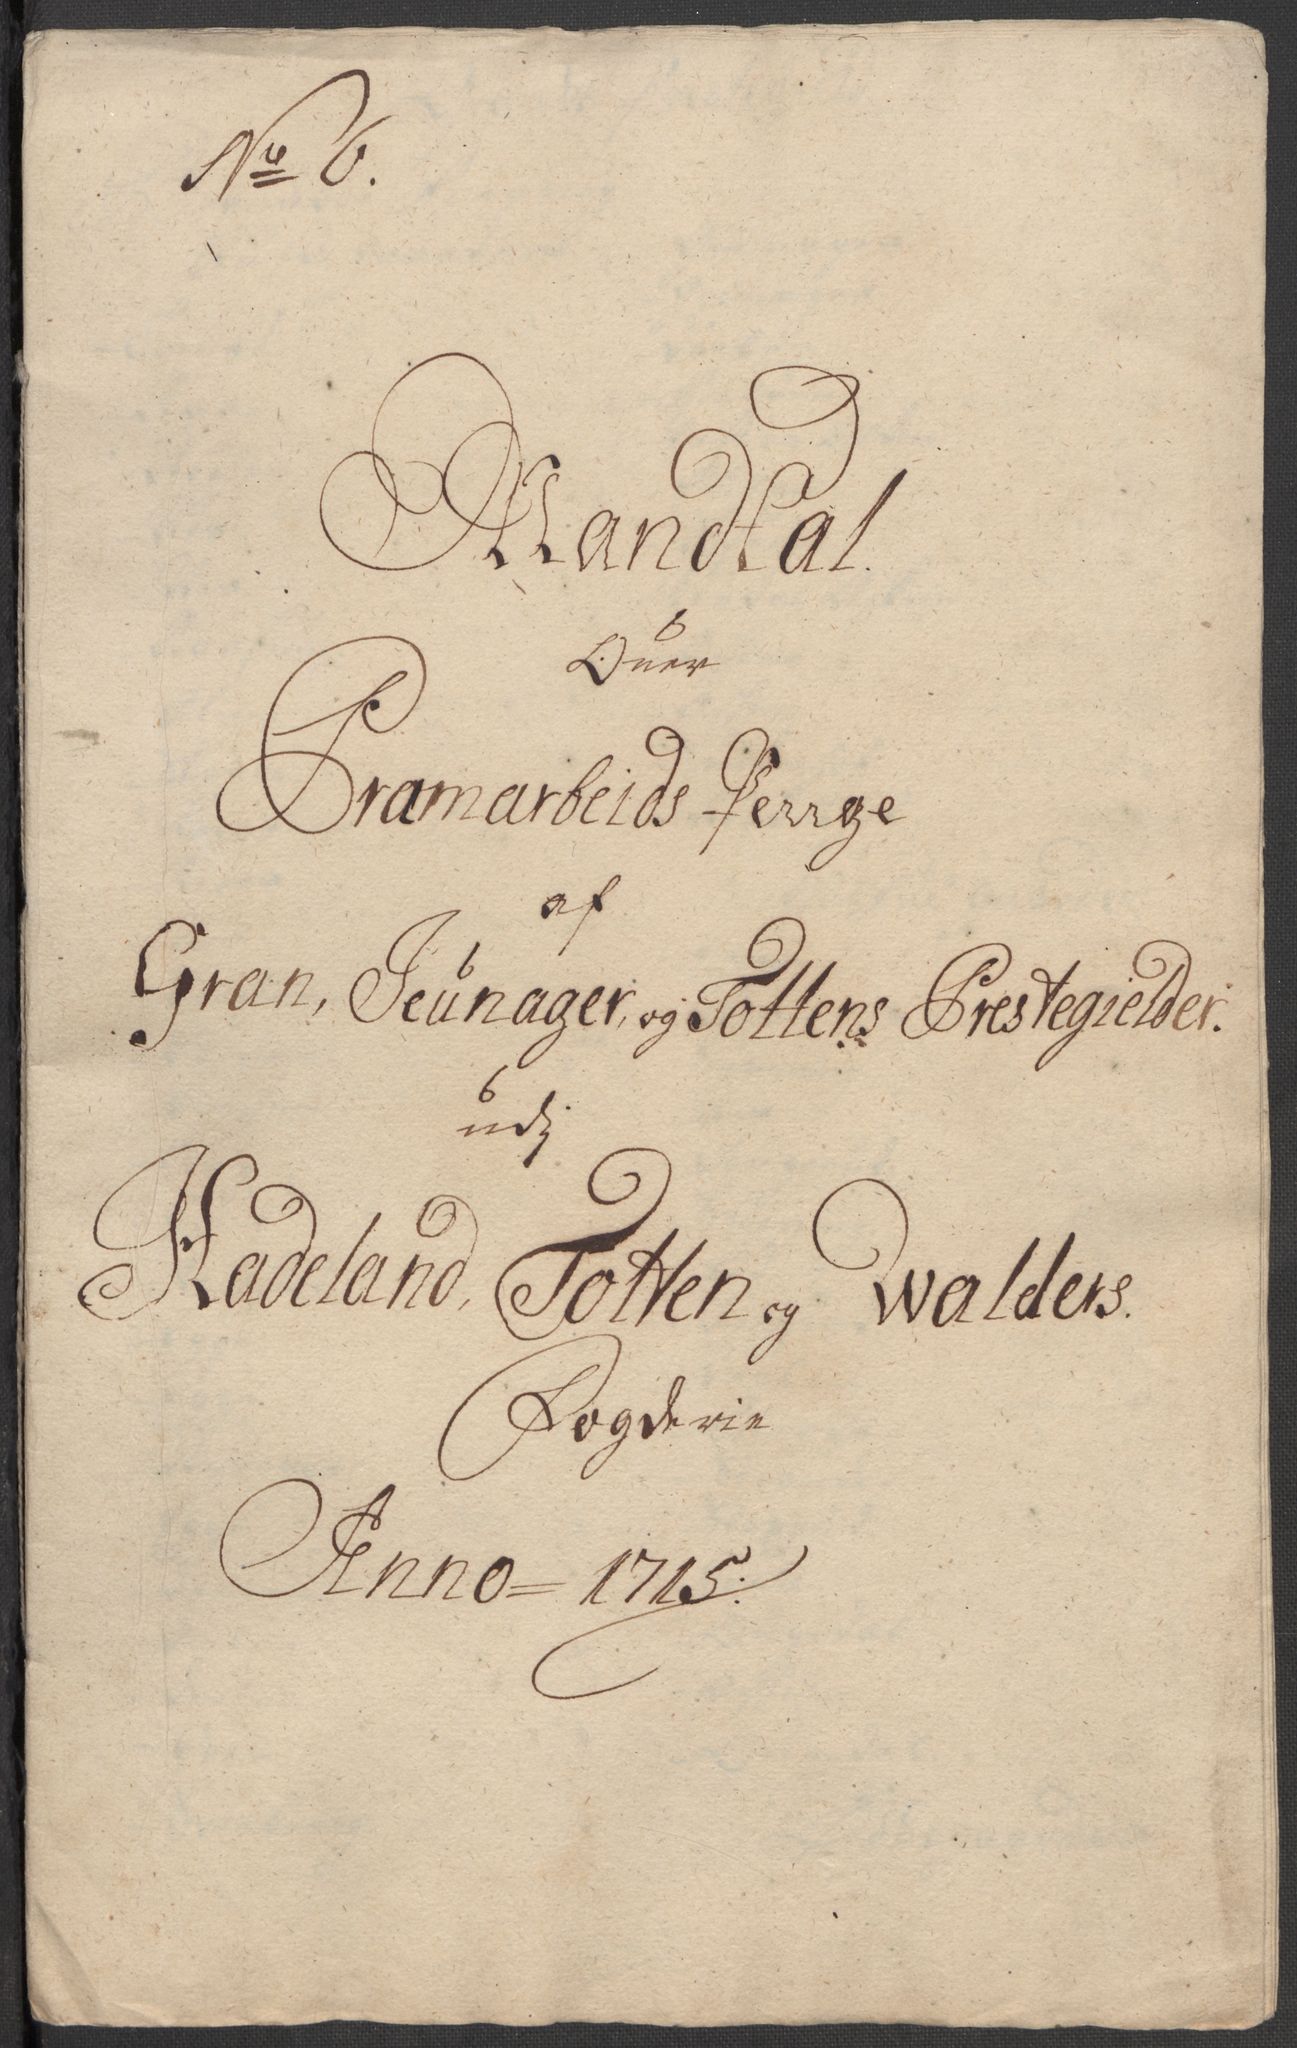 No 6.
Mandtal
Ofuer
Pramarbeids Penge
af
Gran, Jeunager, og Tottens Prestegielder.
udj
Hadeland, Totten og Walders.
Fogderie
Anno = 1715.